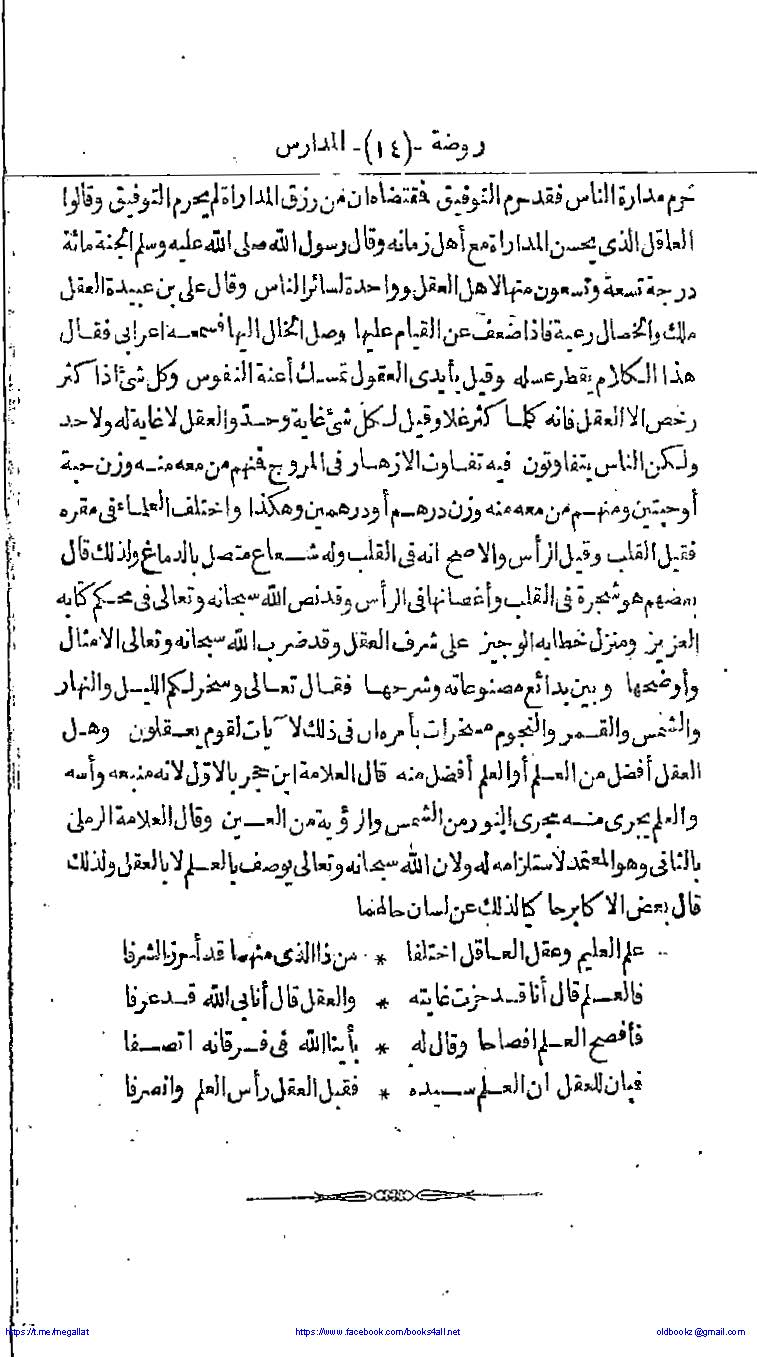 روضة -(١٤)- المدارس
حرم مدارة الناس فقد حرم التوفيق فقتضاه ان من رزق المداراة لم يحرم التوفيق وقالوا
العاقل الذى يحسن المداراة مع أهل زمانه وقال رسول الله صلى الله عليه وسلم الجنة مائة
درجة تسعة وتسعون منها لاهل العقل وواحدة لسائر الناس وقال على بن عبيدة العقل
ملك والخصال رعية فاذا ضعف عن القيام عليها وصل الخال اليها فسمعه اعرابى فقال
هذا الكلام يقطر عسله وقيل بأيدى العقول تمسك أعنة النفوس وكل شئ اذا كثر
رخص الا العقل فانه كلما كثر غلا وقيل لكل شئ غاية وحد والعقل لا غاية له ولا حد
ولكن الناس يتفاوتون فيه تفاوت الازهار فى المروج فنهم من معه منه وزن حبة
أو حبتين ومنهم من معه منه وزن درهم أو درهمين وهكذا واختلف العلماء فى مقره
فقيل القلب وقيل الرأس والاصح انه فى القلب وله شعاع متصل بالدماغ ولذلك قال
بعضهم هو شجرة فى القلب وأغصانها فى الرأس وقد نص الله سبحانه وتعالى فى محكم كتابه
العزيز ومنزل خطابه الوجيز على شرف العقل وقد ضرب الله سبحانه وتعالى الامثال
وأوضحها وبين بدائع مصنوعاته وشرحها فقال تعالى وسخر لكم الليل والنهار
والشمس والقمر والنجوم مسخرات بأمره ان فى ذلك لآيات لقوم يعقلون وهل
العقل أفضل من العلم أو العلم أفضل منه قال العلامة ابن حجر بالاول لانه منبعه وأسه
والعلم يجرى منه مجرى النور من الشمس والرؤية من العين وقال العلامة الرملى
بالثانى وهو المعتمد لاستلزامه له ولان الله سبحانه وتعالى يوصف بالعلم لا بالعقل ولذلك
قال بعض الاكابر حاكيا لذلك عن لسان حالهما
علم العليم وعقل العاقل اختلفا * من ذا الذى منهما قد أحرز الشرفا
فالعلم قال أنا قد حزت غايته * والعقل قال أنا بى الله قد عرفا
فأفصح العلم افصاحا وقال له * بأينا الله فى فرقانه اتصفا
فبان للعقل ان العلم سيده * فقبل العقل رأس العلم وانصرفا
https://t.me/megallat https://www.facebook.com/books4all.net oldbookz@gmail.com